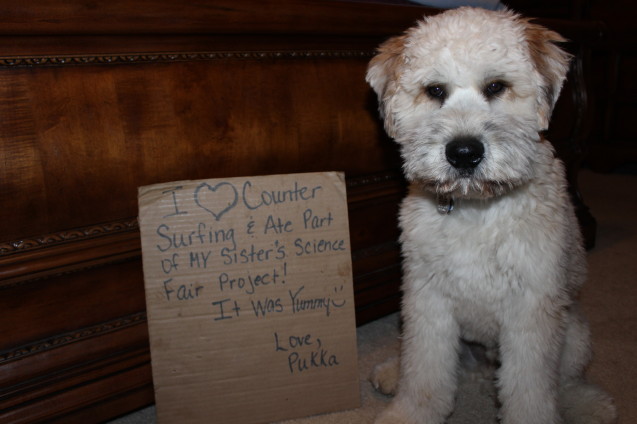 I ♡ Counter
Surfing & Ate Part
of My Sister's Science
Fair Project!
It Was Yummy ☺
Love,
Pukka